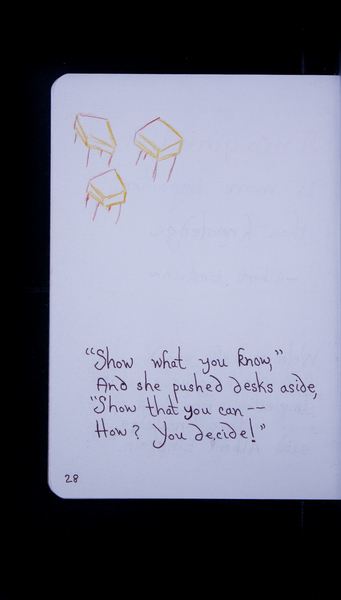 "Show what you know,"
And she pushed desks aside,
"Show that you can --
How? You decide!"
28